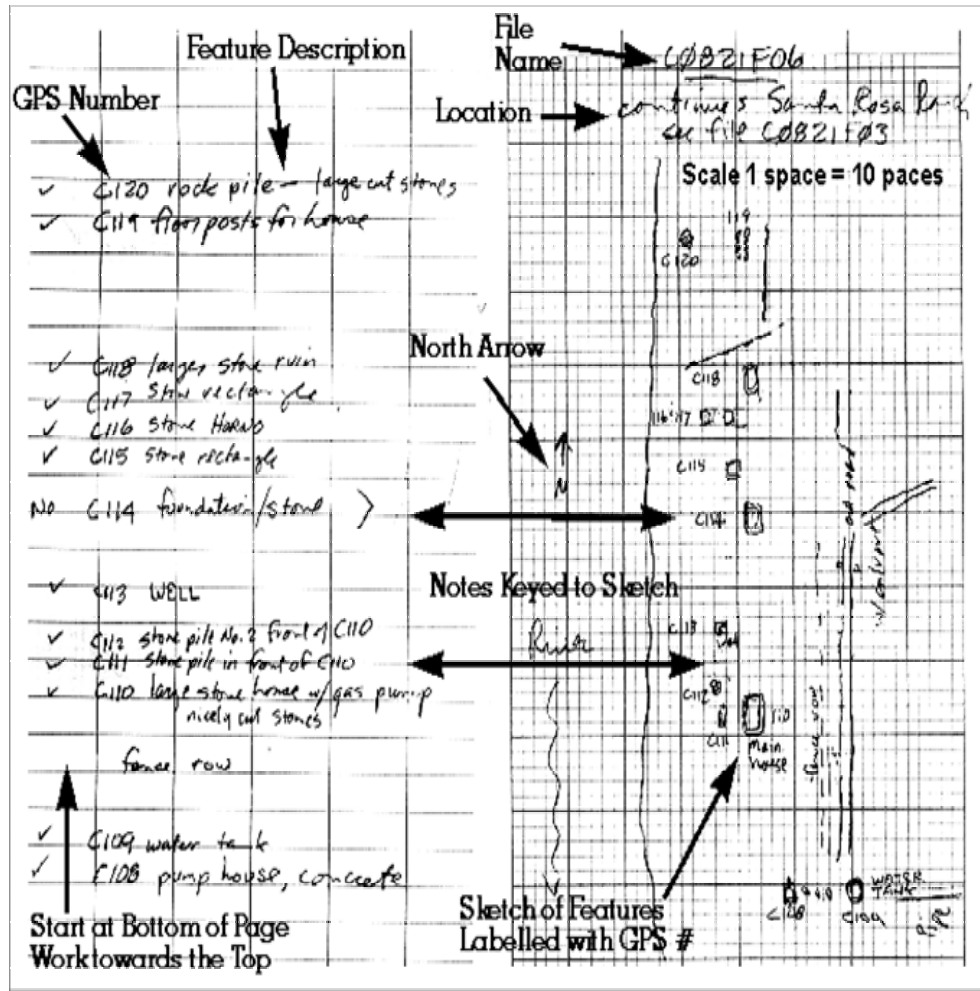 Feature Description
GPS Number
C120 rock pile — large cut stones
C119 floor posts for house
C118 larger stone ruin
C117 stone rectangle
C116 stone HORNO
C115 stone rectangle
No C114 foundation/stone
C113 WELL
C112 stone pile No. 2 front of C110
C111 stone pile in front of C110
C110 large stone house w/gas pump
nicely cut stones
fence row
C109 water tank
C108 pump house, concrete
Start at Bottom of Page
Work towards the Top
File
Name
CØ821FØ6
Location
continues Santa Rosa Ranch
see file CØ821FØ3
Scale 1 space = 10 paces
119
C120
North Arrow
N
C118
116 117
C115
C114
old road
Notes Keyed to Sketch
River
C113
Well
C112
C111
110
main
house
fence row
Sketch of Features
Labelled with GPS #
C108
C109
WATER
TANK
Pipe